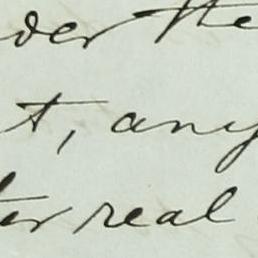 der the
t, any
ter real